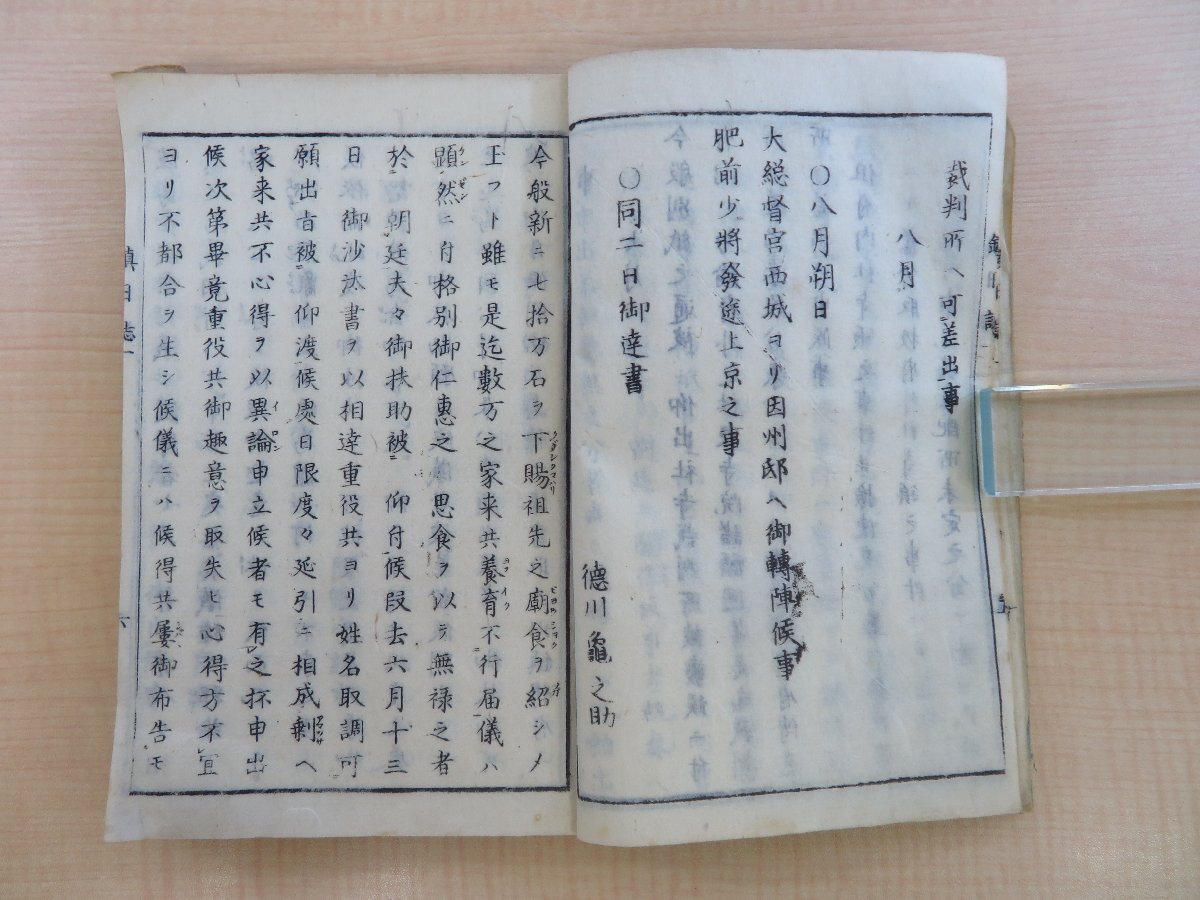 裁判所ヘ可差出事
八月
〇八月朔日
大総督宮西城ヨリ因州邸ヘ御轉陣候事
肥前少將發途上京之事
〇同二日御達書
德川龜之助
今般新ニ七拾万石ヲ下賜祖先之廟食ヲ紹シメ
玉フト雖モ是迄數万之家来共養育不行届儀ハ
顕然ニ付格別御仁惠之思食ヲ以テ無禄之者
於朝廷夫々御扶助被仰付候段去六月十三
日御沙汰書ヲ以相達重役共ヨリ姓名取調可
願出旨被仰渡候處日限度々延引ニ相成剰ヘ
家来共不心得ヲ以異論申立候者モ有之抔申出
候次第畢竟重役共御趣意ヲ取失ヒ心得方不宜
ヨリ不都合ヲ生シ候儀ニハ候得共屢御布告モ
鎮日誌一
六